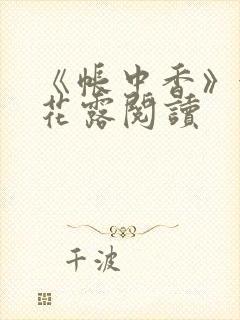 《帳中香》
花露閱讀
千波